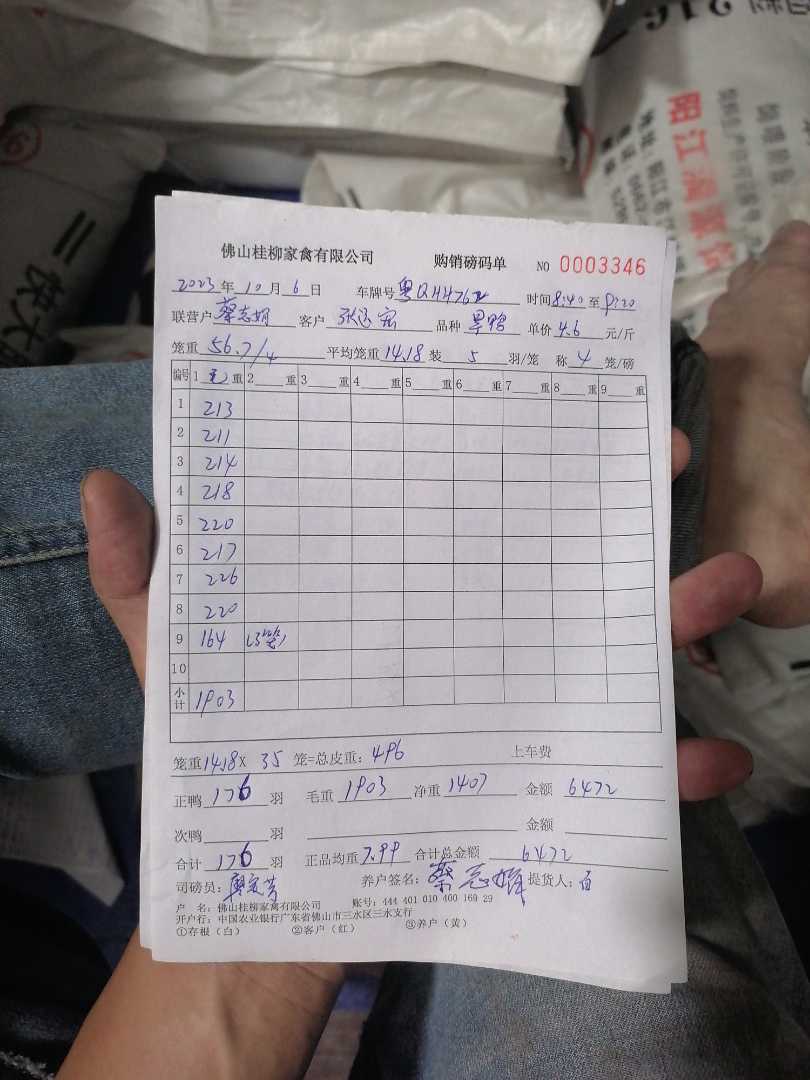 916
阳江温氏
三快大
佛山桂柳家禽有限公司 购销磅码单 NO 0003346
2023年10月6日 车牌号 粤QHH762 时间 8:40 至 9:20
联营户 蔡志娟 客户 品种 单价 4.6 元/斤
笼重 56.7/4 平均笼重 14.18 装 5 羽/笼 称 4 笼/磅
编号 1 重 2 重 3 重 4 重 5 重 6 重 7 重 8 重 9 重
1 213
2 211
3 214
4 218
5 220
6 217
7 226
8 220
9 164 (3笼)
10
小计 1903
笼重 14.18 X 35 笼=总皮重: 496 上车费
正鸭 176 羽 毛重 1903 净重 1407 金额 6472
次鸭 羽 金额
合计 176 羽 正品均重 7.99 合计总金额 6472
司磅员: 养户签名: 提货人:
户 名: 佛山桂柳家禽有限公司 账号: 444 401 010 400 169 29
开户行: 中国农业银行广东省佛山市三水区三水支行
①存根(白) ②客户(红) ③养户(黄)